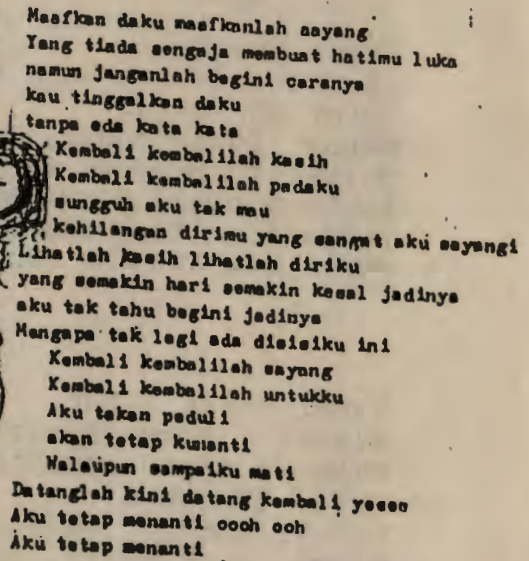 Maafkan daku maafkanlah sayang
Yang tiada sengaja membuat hatimu luka
namun janganlah begini caranya
kau tinggalkan daku
tanpa ada kata kata
Kembali kembalilah kasih
Kembali kembalilah padaku
sungguh aku tak mau
kehilangan dirimu yang sangat aku sayangi
Lihatlah kasih lihatlah diriku
yang semakin hari semakin kesal jadinya
aku tak tahu begini jadinya
Mengapa tak lagi ada disisiku ini
Kembali kembalilah sayang
Kembali kembalilah untukku
Aku takan peduli
akan tetap kunanti
Walaupun sampaiku mati
Datanglah kini datang kembali yeeee
Aku tetap menanti oooh ooh
Aku tetap menanti